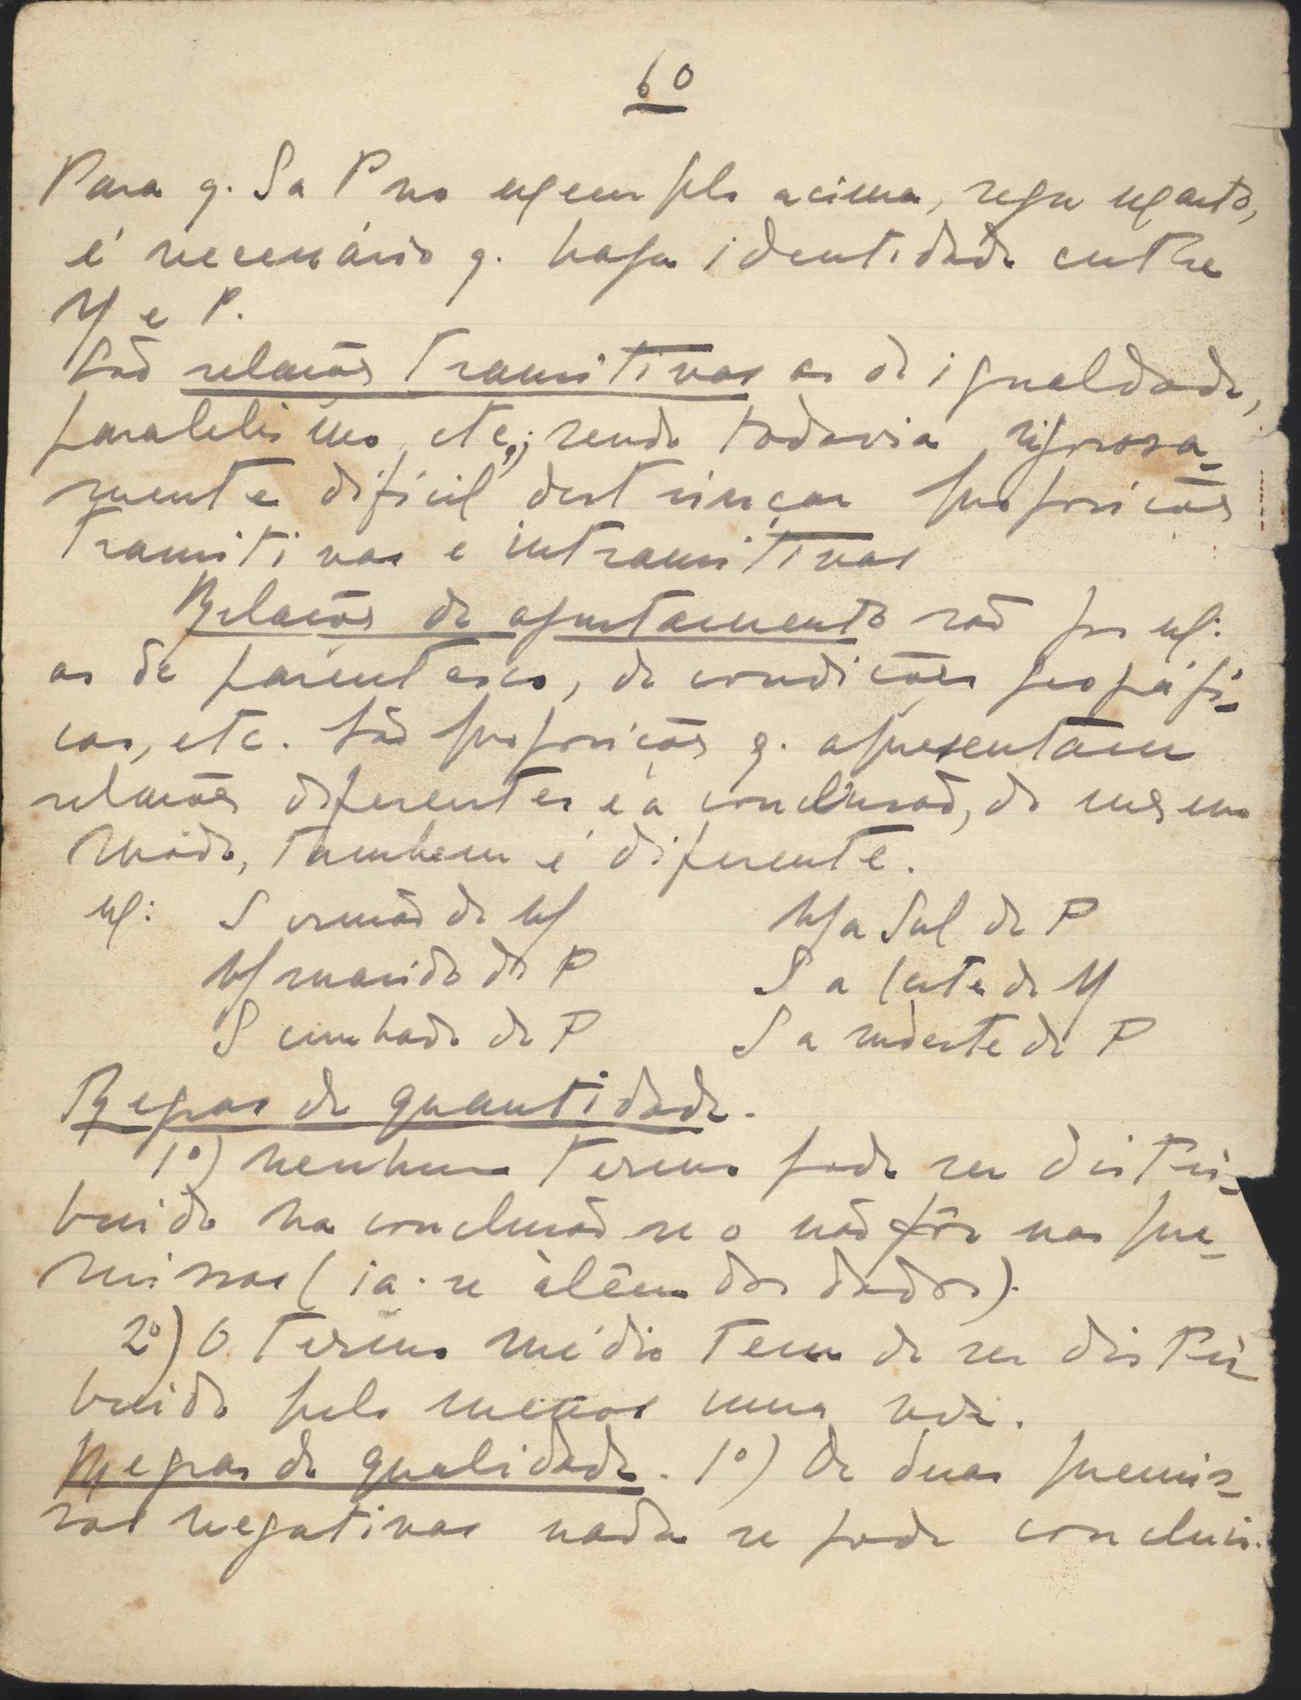 60
Para q. S a P no exemplo acima, seja exacto,
é necessário q. haja identidade entre
M e P.
São relações transitivas as de igualdade,
paralelismo, etc.; sendo todavia rigorosa-
mente difícil destrinçar proposições
transitivas e intransitivas
Relações de ajustamento são por ex:
as de parentesco, de condições geográfi-
cas, etc. São proposições q. apresentam
relações diferentes e a conclusão, do mesmo
módo, tambem é diferente.
ex: S irmão de M
M marido de P
S cunhado de P
M a Sul de P
S a leste de M
S a sudeste de P
Regras de quantidade.
1º) nenhum termo pode ser distri-
buido na conclusão se o não fôr nas pre-
missas (ia-se àlêm dos dados).
2º) O termo médio tem de ser distri-
buido pelo menos uma vez.
Regras de qualidade. 1º) De duas premis-
sas negativas nada se pode concluir.